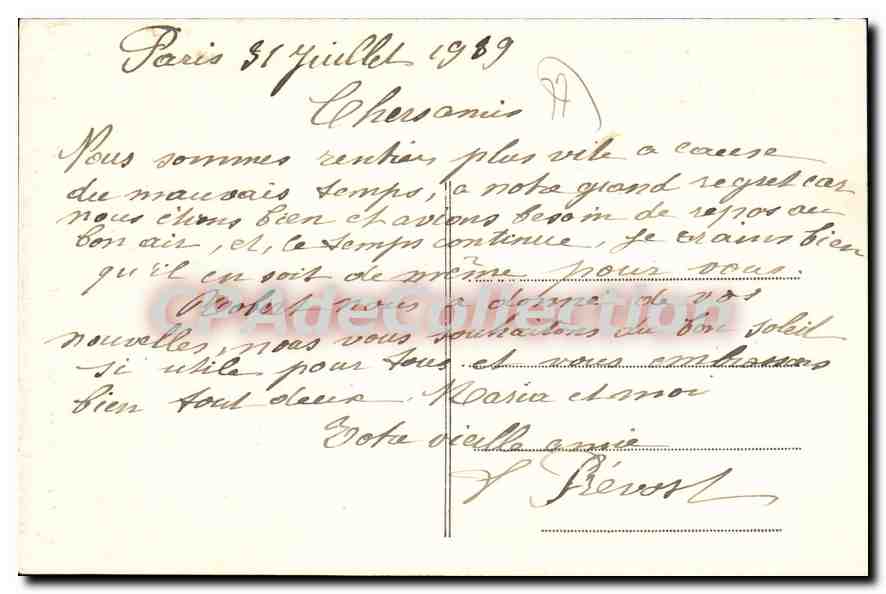 Paris 31 Juillet 1939
77
Chers amis
Nous sommes rentier plus vite a cause
du mauvais temps, a notre grand regret car
nous etions bien et avions besoin de repos au
bon air, et, le temps continue, je crains bien
qu'il en soit de même pour vous.
Robert nous a donné de vos
nouvelles, nous vous souhaitons du bon soleil
si utile pour tous et vous embrassons
bien tout deux. Maria et moi
Votre vieille amie
Prévost
CPAdeCollection